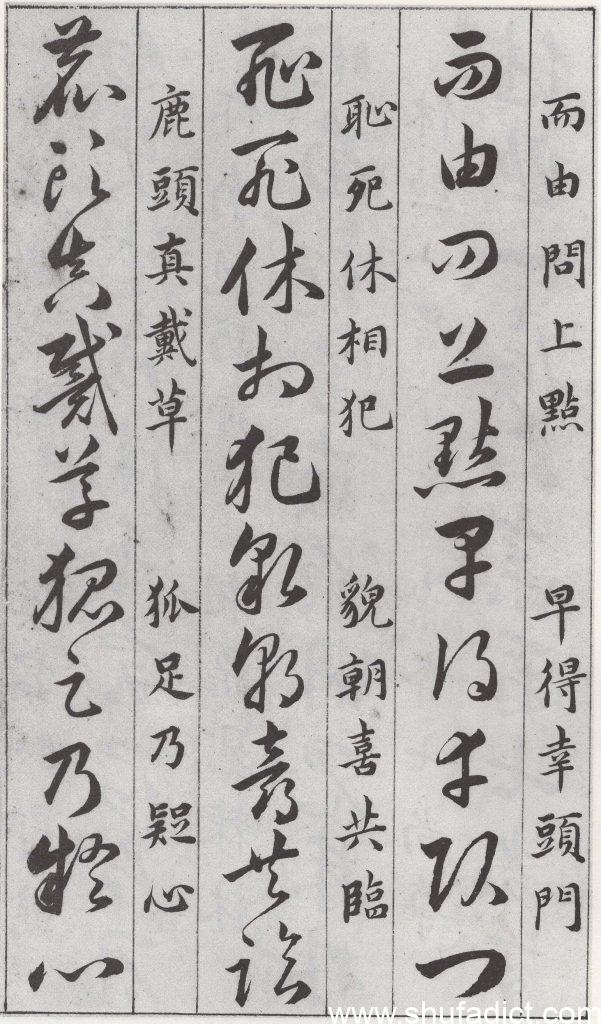 而由問上點 早得幸頭門
而由問上點早得幸頭門
恥死休相犯 貌朝喜共臨
恥死休相犯貌朝喜共臨
鹿頭真戴草 狐足乃疑心
鹿頭真戴草狐足乃疑心
www.shufadict.com